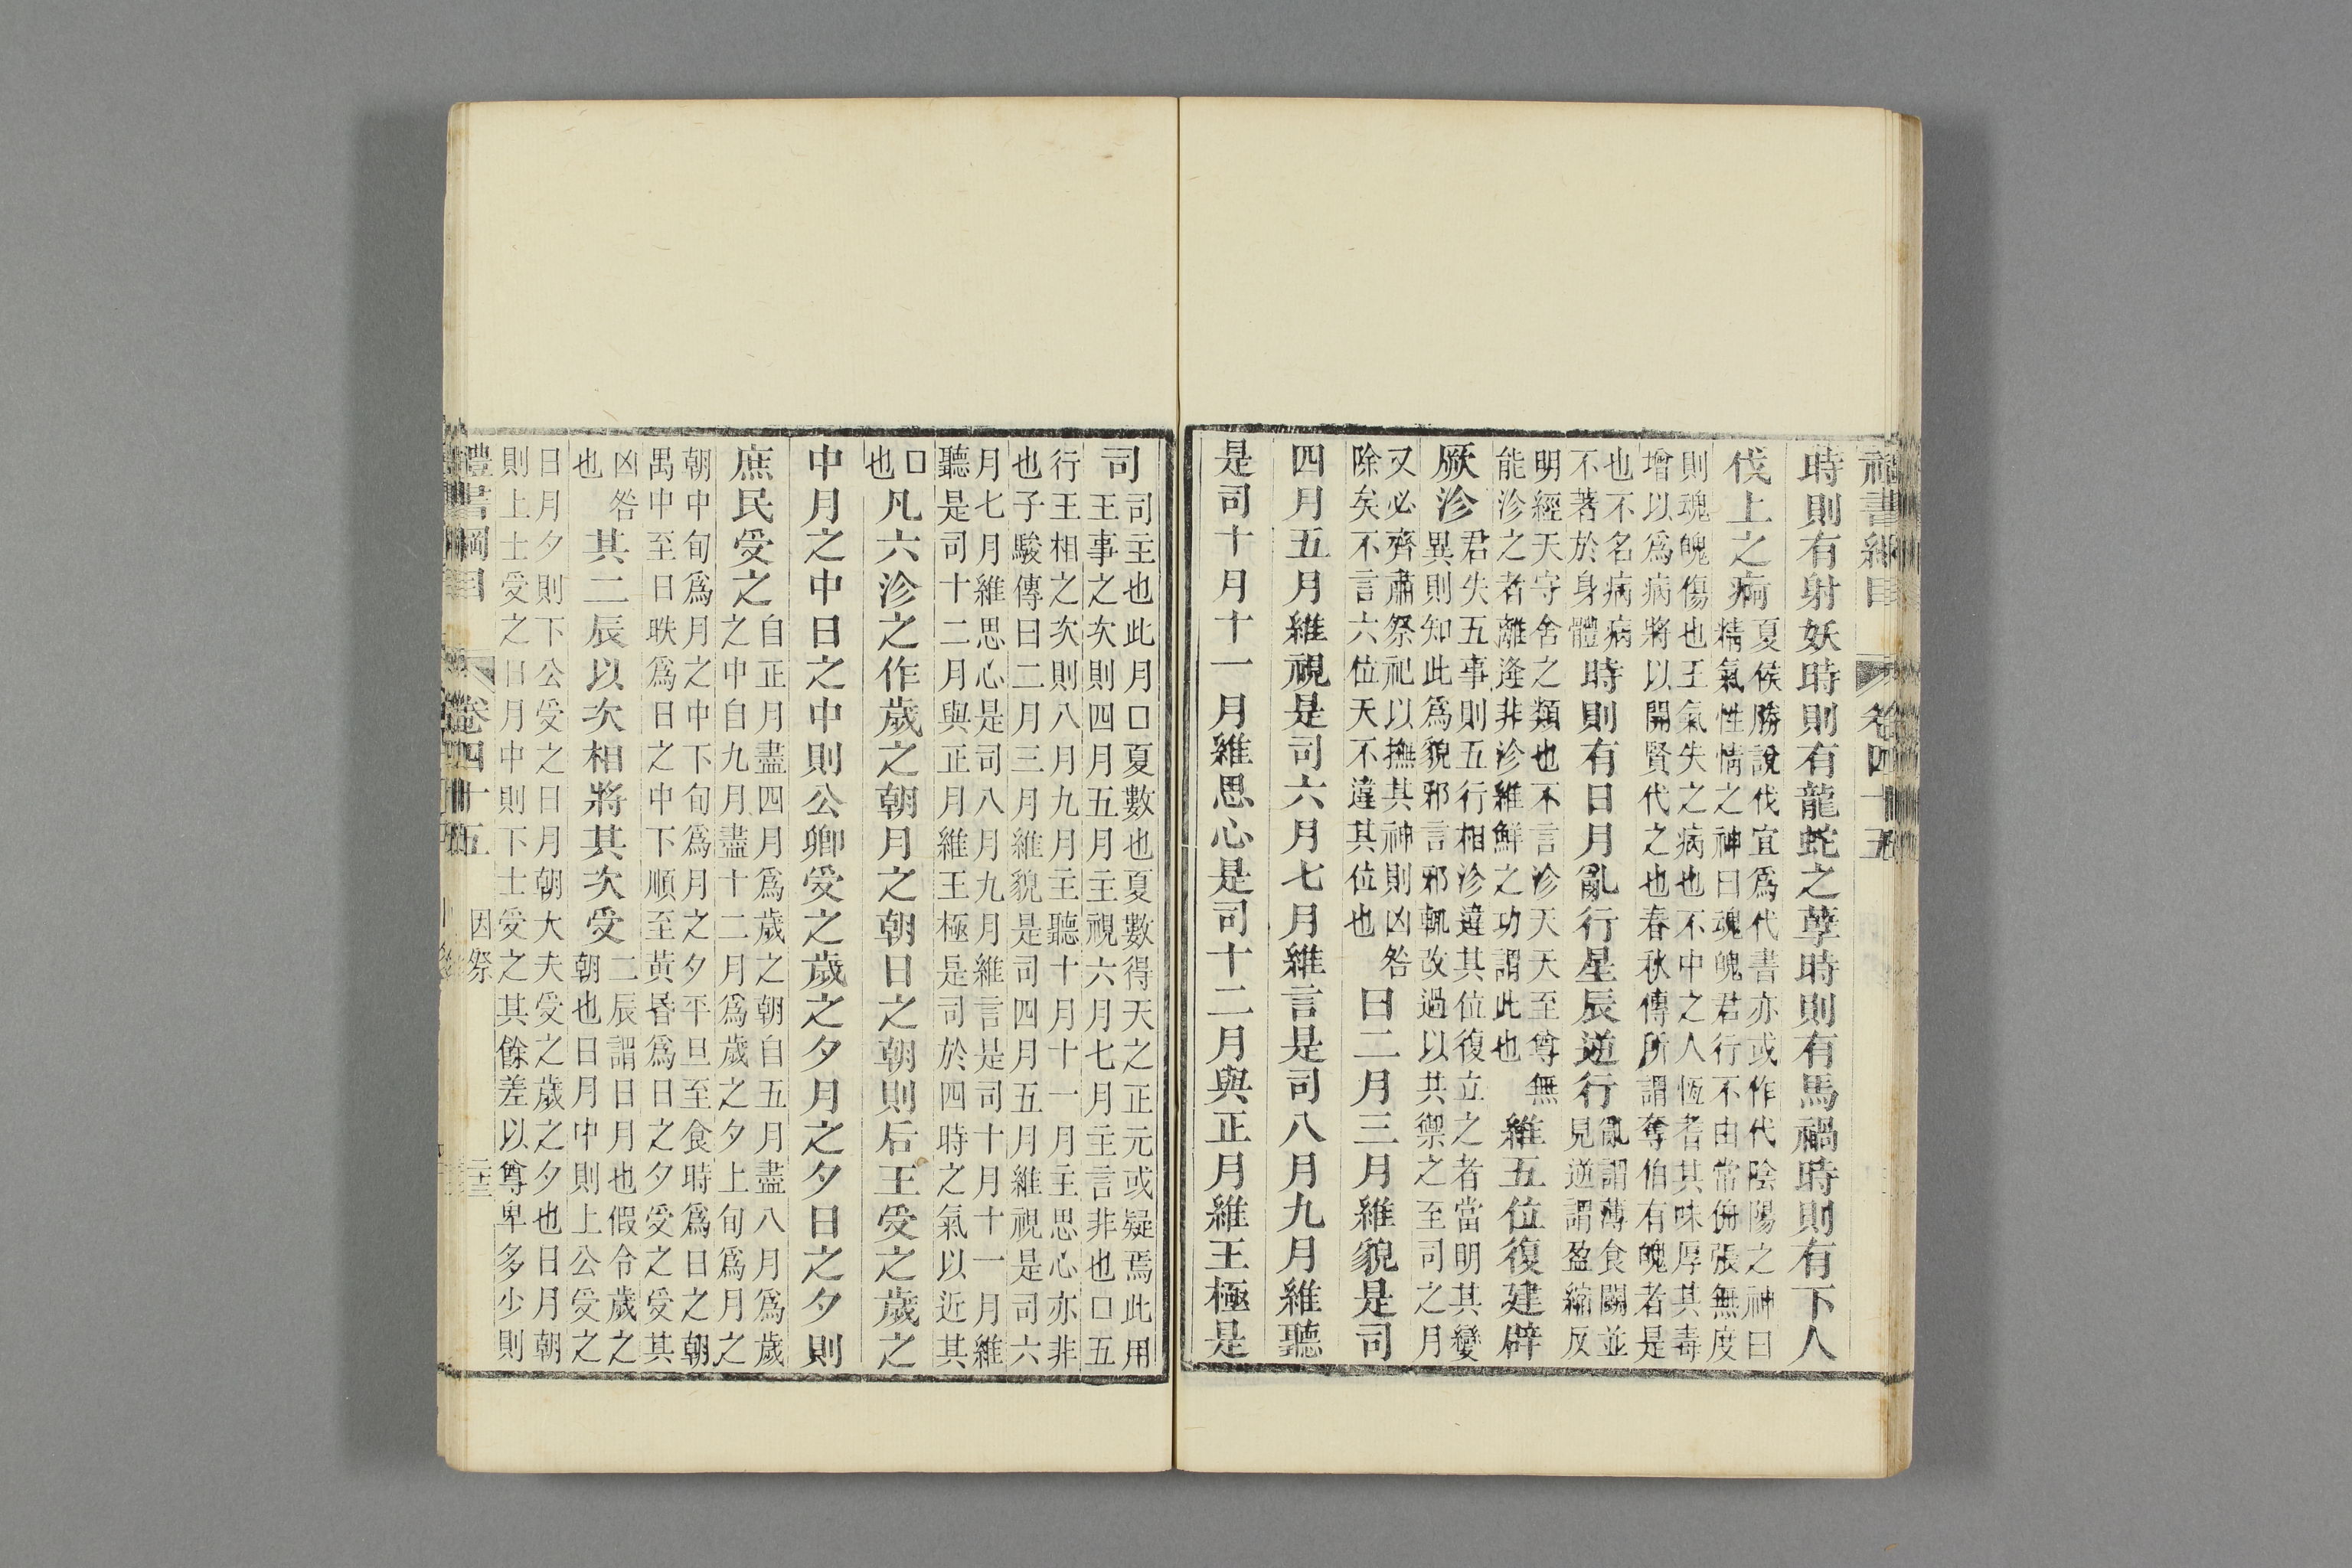 禮書綱目 卷四十五
時則有射妖時則有龍蛇之孽時則有馬禍時則有下人
伐上之痾夏侯勝說伐宜爲代書亦或作代陰陽之神曰
精氣性情之神曰魂魄君行不由常侜張無度
則魂魄傷也王氣失之病也不中之人恆耆其味厚其毒
增以爲病將以開賢代之也春秋傳所謂奪伯有魄者是
也不名病病
不著於身體時則有日月亂行星辰逆行亂謂薄食鬬並
見逆謂盈縮反
明經天守舍之類也不言沴天天至尊無
能沴之者離逢非沴維鮮之功謂此也維五位復建辟
厥沴君失五事則五行相沴違其位復立之者當明其變
異則知此爲貌邪言邪輒改過以共禦之至司之月
又必齊肅祭祀以撫其神則凶咎
除矣不言六位天不違其位也曰二月三月維貌是司
四月五月維視是司六月七月維言是司八月九月維聽
是司十月十一月維思心是司十二月與正月維王極是
司司主也此月口夏數也夏數得天之正元或疑焉此用
王事之次則四月五月主視六月七月主言非也口五
行王相之次則八月九月主聽十月十一月主思心亦非
也子駿傳曰二月三月維貌是司四月五月維視是司六
月七月維思心是司八月九月維言是司十月十一月維
聽是司十二月與正月維王極是司於四時之氣以近其
口
也凡六沴之作歲之朝月之朝日之朝則后王受之歲之
中月之中日之中則公卿受之歲之夕月之夕日之夕則
庶民受之自正月盡四月爲歲之朝自五月盡八月爲歲
之中自九月盡十二月爲歲之夕上旬爲月之
朝中旬爲月之中下旬爲月之夕平旦至食時爲日之朝
禺中至日昳爲日之中下順至黃昬爲日之夕受之受其
凶咎
也其二辰以次相將其次受二辰謂日月也假令歲之
朝也日月中則上公受之
日月夕則下公受之日月朝大夫受之歲之夕也日月朝
則上士受之日月中則下士受之其餘差以尊卑多少則
禮書綱目 卷四十五 因祭 二十三